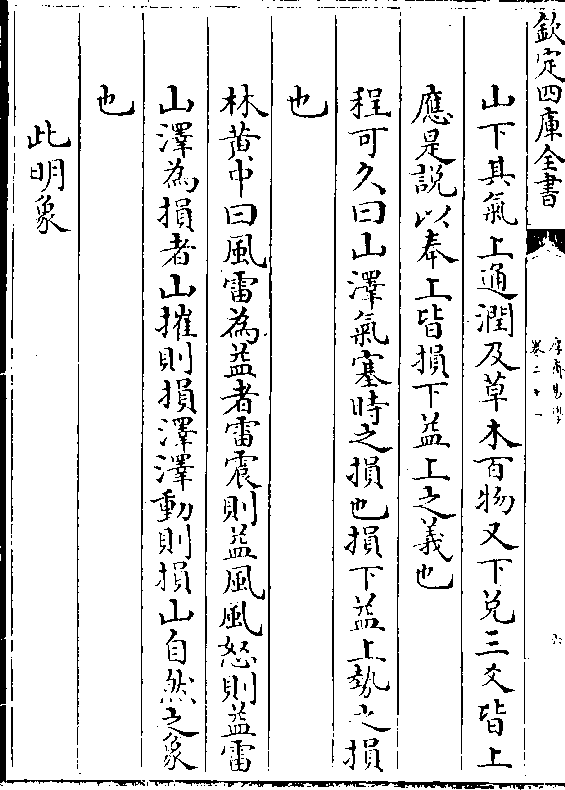 欽定四庫全書
厚齋易學
卷二十一
山下其氣上通潤及草木百物又下兑三爻皆上
應是説以奉上皆損下益上之義也
程可久曰山澤氣塞時之損也損下益上勢之損
也
林黄中曰風雷為益者雷震則益風風怒則益雷
山澤為損者山摧則損澤澤動則損山自然之象
也
此明象